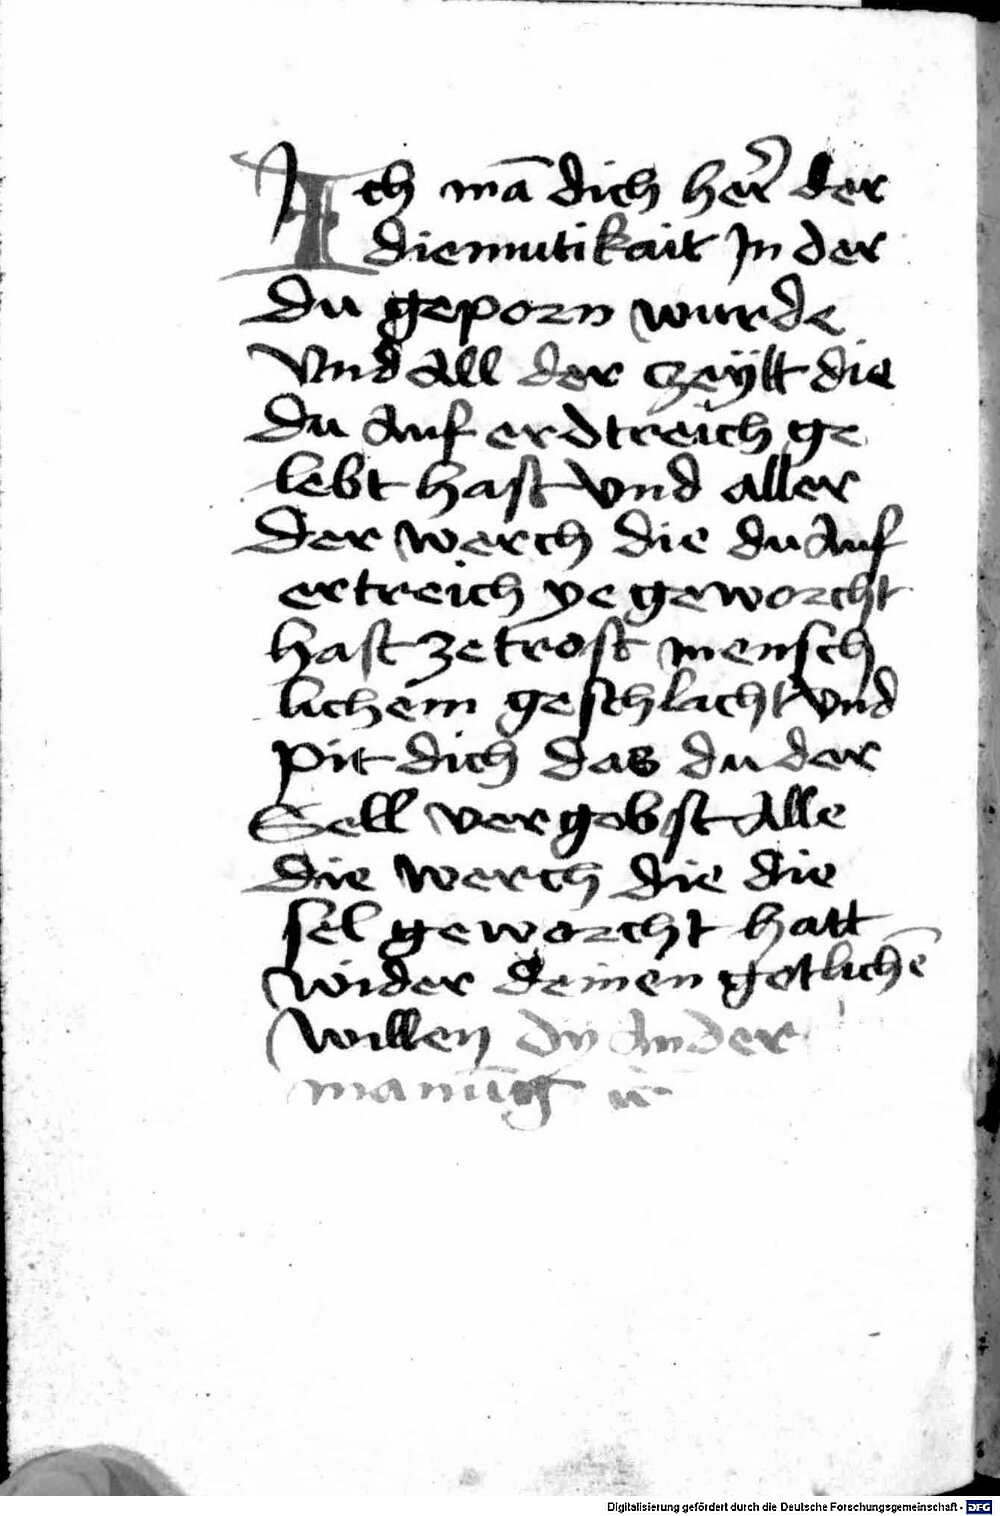 Ich mā dich her̄ der
diemutikait Jn der
du geporn wurde
Vnd All der czeÿtt die
du Auf erdtreich ge
lebt hast vnd aller
der werch die du Auf
ertreich ye geworcht
hast ze trost mensch
lichem geschlacht vnd
pit dich das du der
Sell vergebst Alle
die werch die die
sel geworcht hatt
wider deinen gotlichē
willen dy Ander
manūg
Digitalisierung gefördert durch die Deutsche Forschungsgemeinschaft - DFG